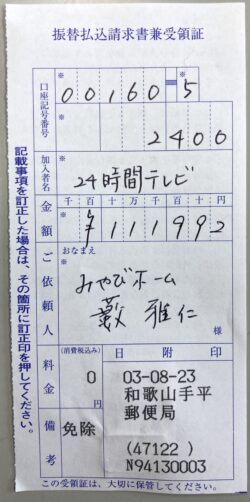 振替払込請求書兼受領証
口座記号番号
00160-5
2400
加入者名
24時間テレビ
金額
千百十万千百十円
¥111992
ご依頼人
おなまえ
みやびホーム
藪 雅仁
様
料金
(消費税込み)
0
円
備考
免除
日附印
03-08-23
和歌山手平
郵便局
(47122)
N94130003
記載事項を訂正した場合は、その箇所に訂正印を押してください。
この受領証は、大切に保管してください。